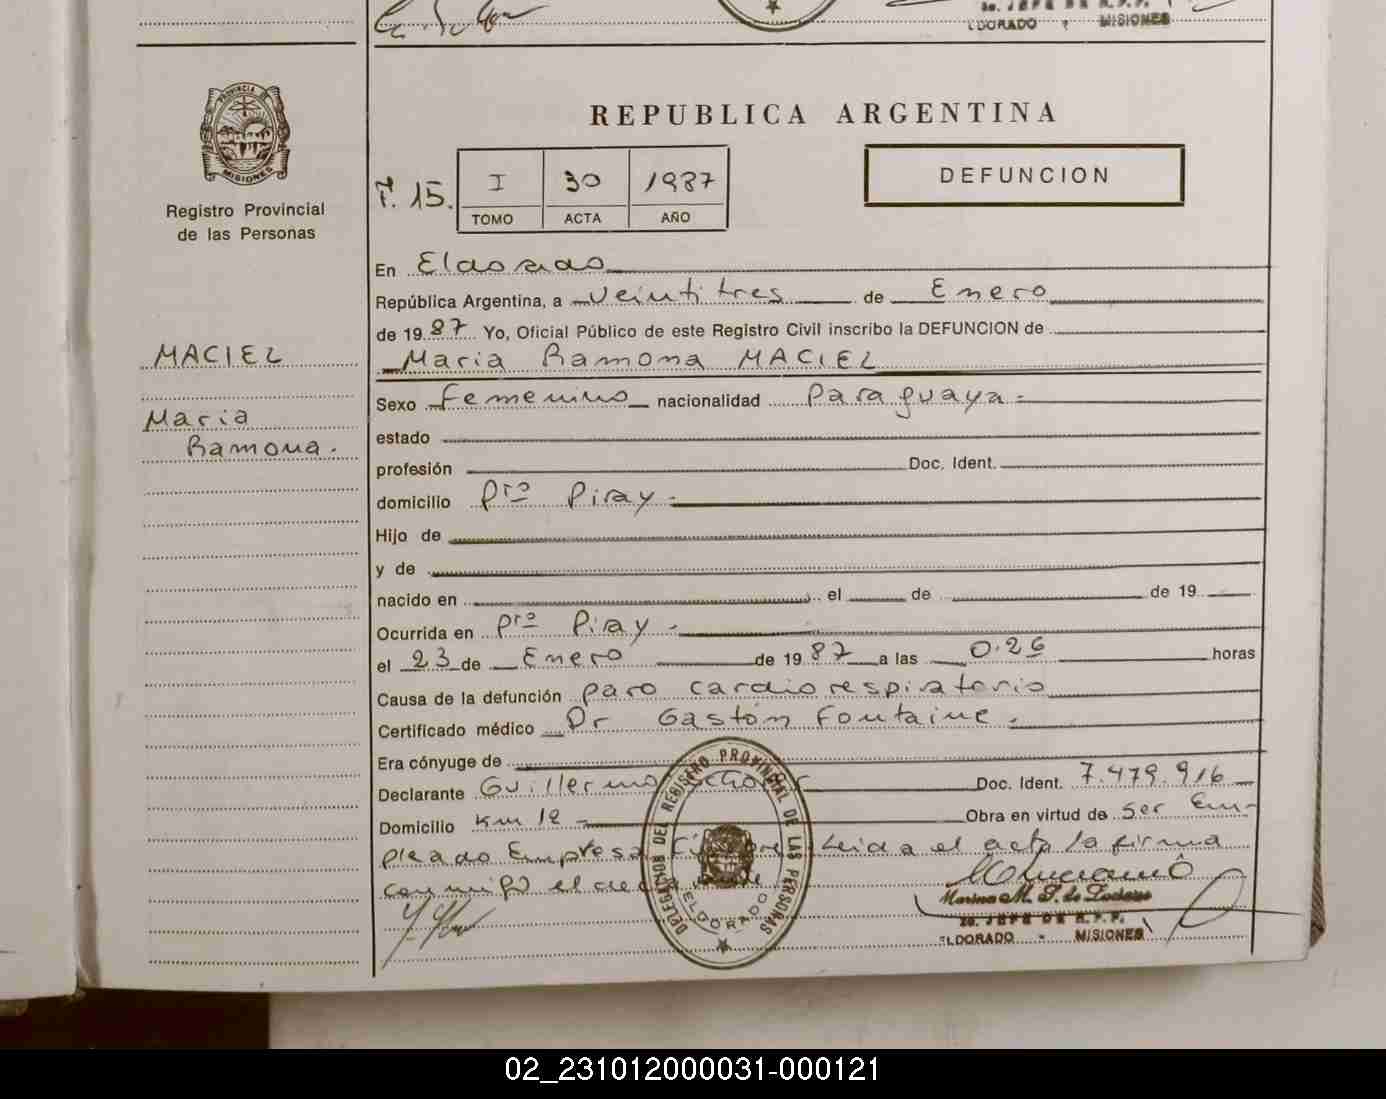 2o. JEFE DE R.P.P.
ELDORADO - MISIONES
PROVINCIA DE
MISIONES
Registro Provincial
de las Personas
REPUBLICA ARGENTINA
F. 15.
I 30 1987
TOMO ACTA AÑO
DEFUNCION
En Eldorado
República Argentina, a veintitres de Enero
de 1987 Yo, Oficial Público de este Registro Civil inscribo la DEFUNCION de
Maria Ramona MACIEL
MACIEL
Maria
Ramona.
Sexo Femenino nacionalidad Paraguaya -
estado
profesión Doc. Ident.
domicilio Pto Piray -
Hijo de
y de
nacido en el de de 19
Ocurrida en Pto Piray -
el 23 de Enero de 1987 a las 0.26 horas
Causa de la defunción paro cardiorespiratorio
Certificado médico Dr Gastón Fontaine.
Era cónyuge de
Declarante Guillermo Doc. Ident. 7.479.916
Domicilio Km 12 - Obra en virtud de ser Em-
pleado Empresa Leida el acta la firma
conmigo el
DELEGACION DEL REGISTRO PROVINCIAL DE LAS PERSONAS
ELDORADO
Marina M. de
2o. JEFE DE R.P.P.
ELDORADO - MISIONES
02_231012000031-000121